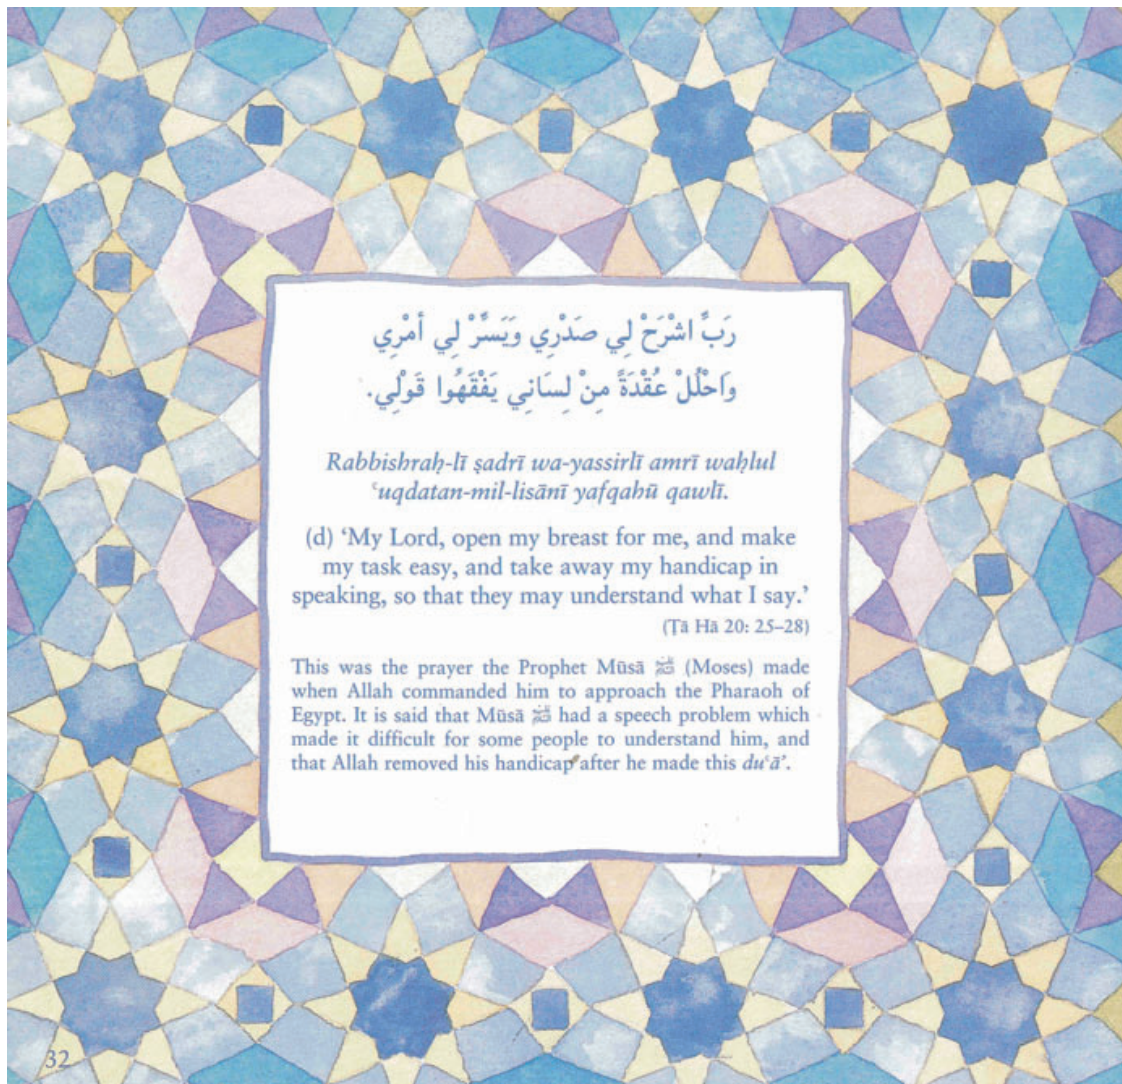 رَبِّ اشْرَحْ لِي صَدْرِي وَيَسِّرْ لِي أمْرِي
وَاحْلُلْ عُقْدَةً مِنْ لِسَانِي يَفْقَهُوا قَوْلِي.
Rabbishraḥ-lī ṣadrī wa-yassirlī amrī waḥlul
ʿuqdatan-mil-lisānī yafqahū qawlī.
(d) ‘My Lord, open my breast for me, and make
my task easy, and take away my handicap in
speaking, so that they may understand what I say.’
(Ṭā Hā 20: 25–28)
This was the prayer the Prophet Mūsā (Moses) made
when Allah commanded him to approach the Pharaoh of
Egypt. It is said that Mūsā had a speech problem which
made it difficult for some people to understand him, and
that Allah removed his handicap after he made this duʿā’.
32